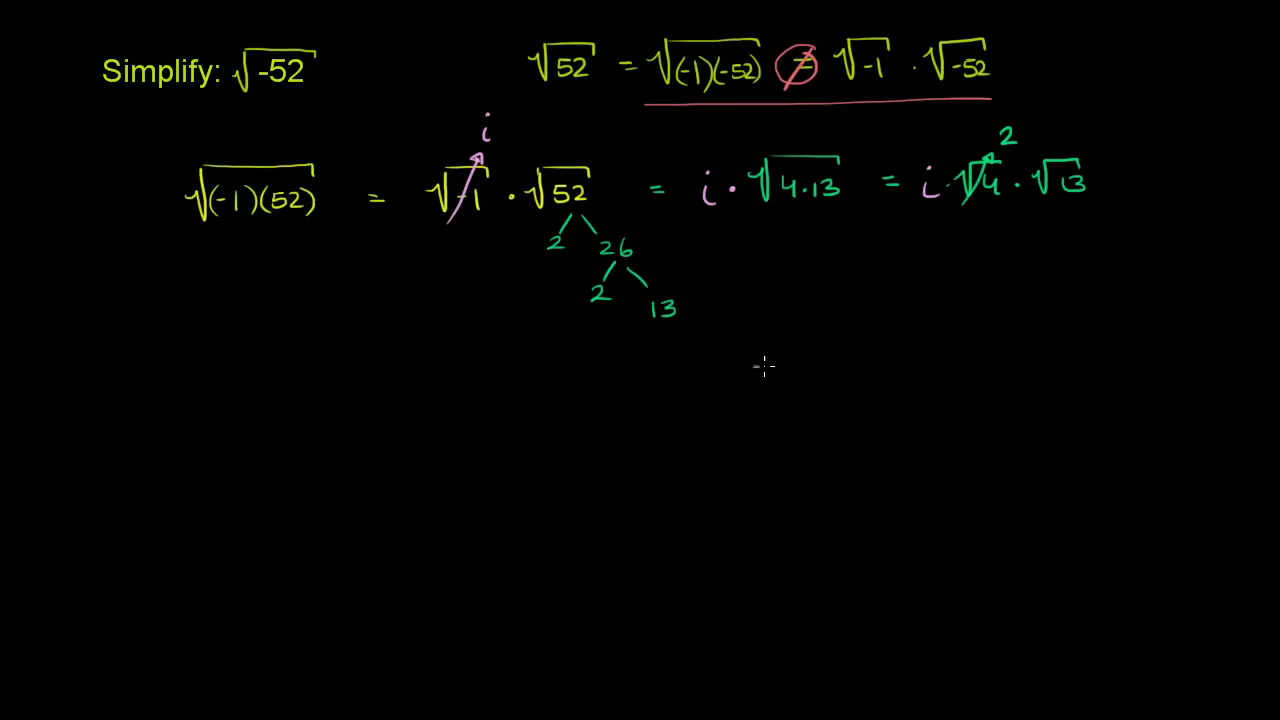 Simplify: √-52
√52 = √(-1)(-52) ≠ √-1 · √-52
i
2
√(-1)(52) = √-1 · √52 = i · √4·13 = i · √4 · √13
2 26
2 13